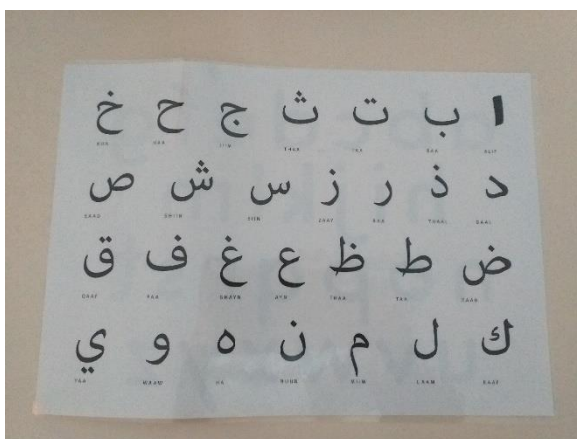 ا ب ت ث ج ح خ
ALIF BAA TAA THAA JIIM HAA
د ذ ر ز س ش ص
DAAL THAAL RAA ZAAY SIIN SHIIN SAAD
ض ط ظ ع غ ف ق
DAAD TAA THAA AYN GHAYN FAA QAAF
ك ل م ن ه و ي
KAAF LAAM MIIM NUUN HA WAAW YAA